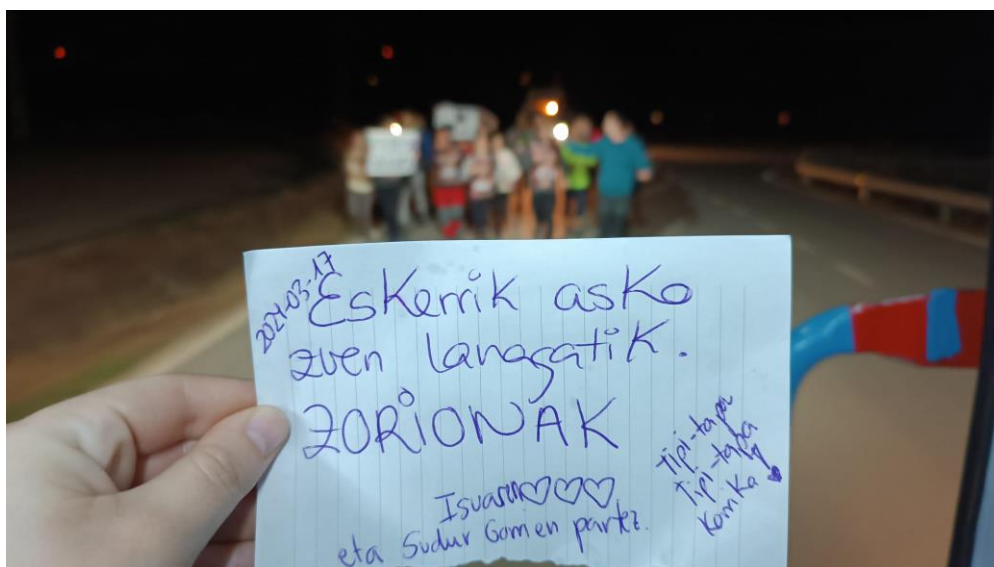 2024-03-17
Eskerrik asko
zuen lanagatik.
ZORIONAK
Isuaren♡♡♡
eta Sudur Gomen partez.
Tipi-tapa
Tipi-tapa
Korrika!